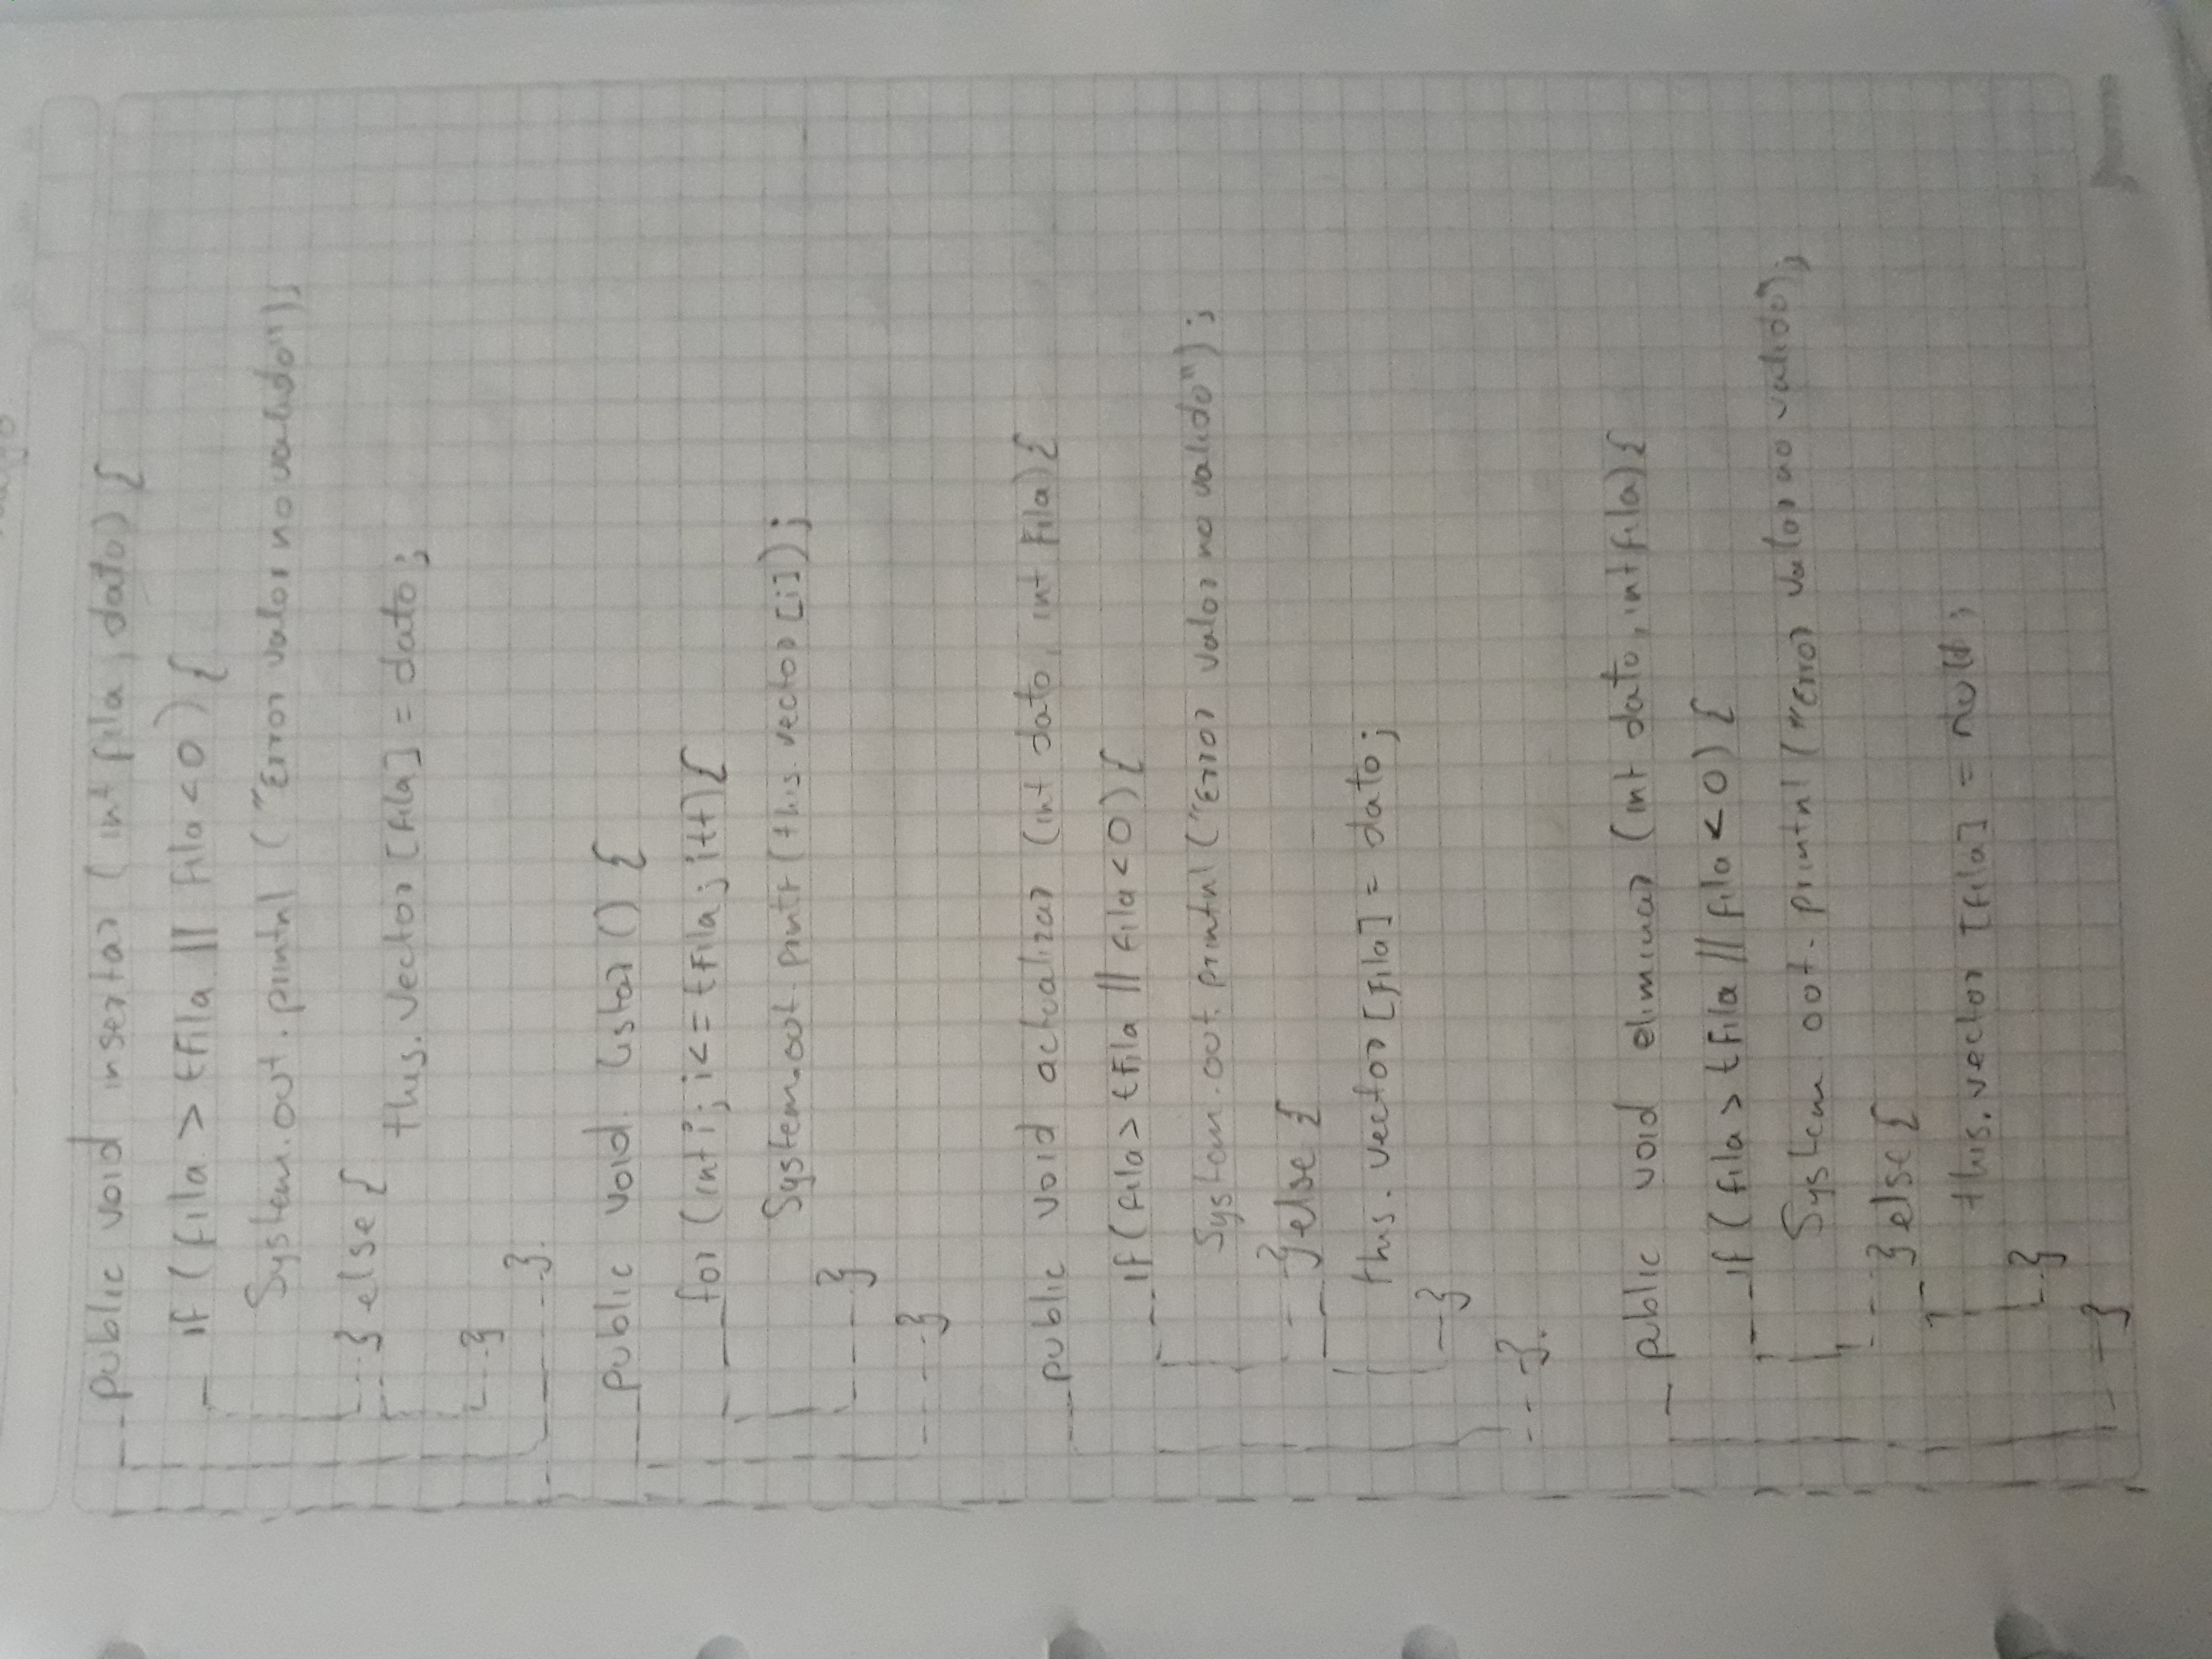 public void insertar (int fila, dato) {
if (fila > tFila || fila < 0) {
System.out.printnl ("Error valor no valido");
} else {
this.vector [fila] = dato;
}
}.
public void listar () {
for (int i; i <= tFila; i++) {
System.out.printf (this.vector [i]);
}
}
public void actualizar (int dato, int Fila) {
if (fila > tFila || fila < 0) {
System.out.printnl ("Error valor no valido");
} else {
this.vector [fila] = dato;
}
}.
public void eliminar (int dato, int fila) {
if (fila > tFila || fila < 0) {
System out.printnl ("Error valor no valido");
} else {
this.vector [fila] = null;
}
}
norma